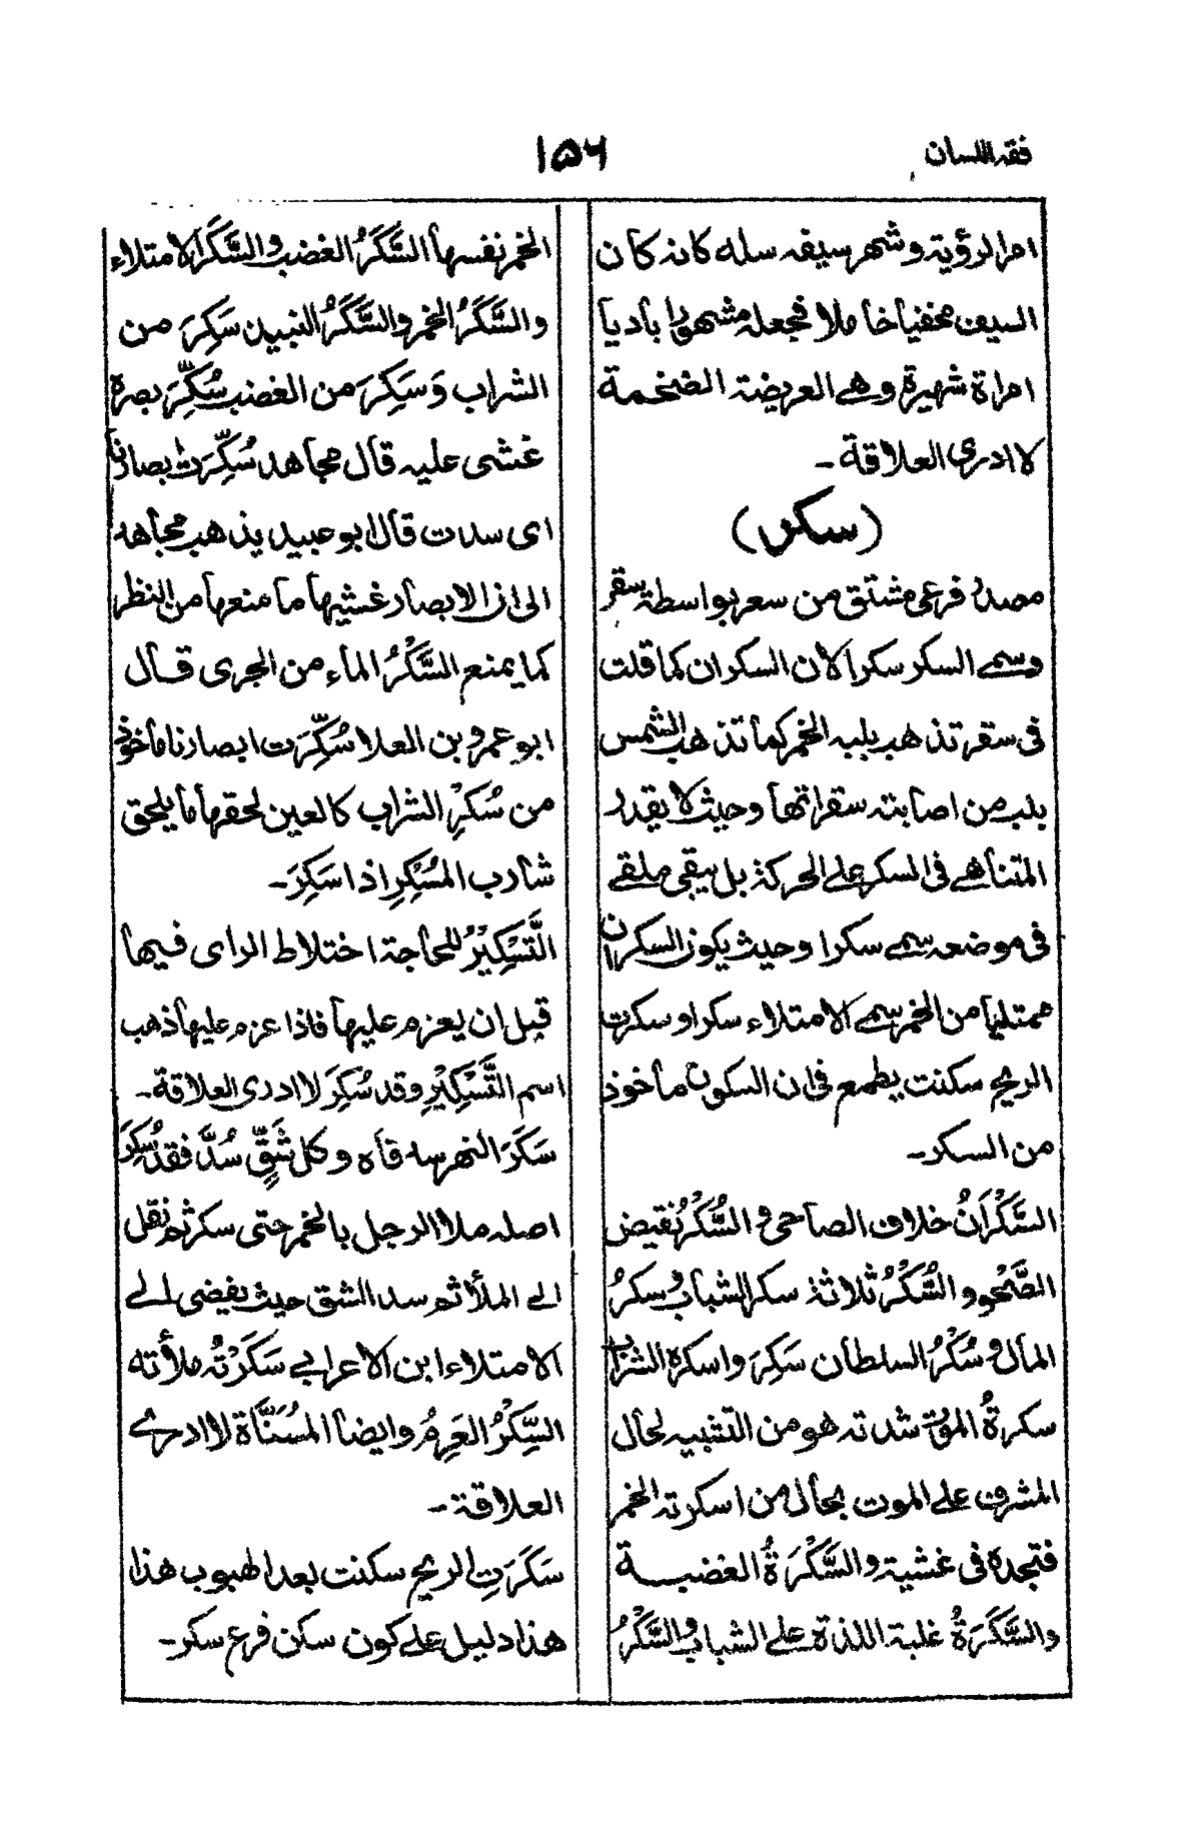 فقه اللسان
١٥٦
امر الرؤية وشهر سيفه سله كانه كان
السيف مخفيا خاملا فجعله مشهورا باديا
امراة شهيرة وهي العريضة الضخمة
لا ادرى العلاقة ـ
(سكر)
مصدر فرعى مشتق من سعر بواسطة سقر
وسمى السكر سكرا لان السكران كما قلت
فى سقر تذهب بلبه الخمر كما تذهب الشمس
بلب من اصابته سقراتها وحيث لا يقدر
المتناهى فى السكر على الحركة بل يبقى ملقى
فى موضعه سمى سكرا وحيث يكون السكران
ممتليا من الخمر سمى الامتلاء سكرا وسكرت
الريح سكنت يطمع فى ان السكون ماخوذ
من السكر ـ
السَّكْرَانُ خلاف الصاحى والسُّكْرُ نقيض
الصَّحْوِ والسُّكْرُ ثلاثة سكر الشباب وسكرُ
المال وسُكْرُ السلطان سَكِرَ واسكره الشراب
سكرةُ الموت شدته هو من التشبيه لحال
المشرف على الموت بحال من اسكرته الخمر
فتجده فى غشية والسَّكْرَةُ الغضبة
والسَّكْرَةُ غلبة اللذة على الشباب والسَّكَرُ
الخمر نفسها السَّكَرُ الغضب والسَّكَرَ الامتلاء
والسَّكَرُ الخمر والسَّكَرُ النبيذ سَكِرَ من
الشراب وَسَكِرَ من الغضب سُكِّرَ بصره
غشى عليه قال مجاهد سُكِّرَت بصارنا
اى سدت قال ابو عبيد يذهب مجاهد
الى ان الابصار غشيها ما منعها من النظر
كما يمنع السَّكْرُ الماء من الجرى قال
ابو عمرو بن العلا سُكِّرَت ابصارنا ماخوذ
من سُكْرِ الشراب كالعين لحقها ما يلحق
شارب المُسْكِرِ اذا سَكِرَ ـ
التَّسْكِيْرُ للحاجة اختلاط الراى فيها
قبل ان يعزم عليها فاذا عزم عليها ذهب
اسم التَّسْكِيْرِ وقد سُكِرَ لا ادرى العلاقة ـ
سَكَرَ النهر سد فاه وكل شَقٍّ سُدَّ فقد سُكِرَ
اصله ملا الرجل بالخمر حتى سكر ثم نقل
الى الملأ ثم سد الشق حيث يفضى الى
الامتلاء ابن الاعرابى سَكَرْتُه ملأته
السِّكْرُ العَرِمُ وايضا المُسَنَّاة لا ادرى
العلاقة ـ
سَكَرَتِ الريح سكنت بعد الهبوب هذا
هذا دليل على كون سكن فرع سكر ـ